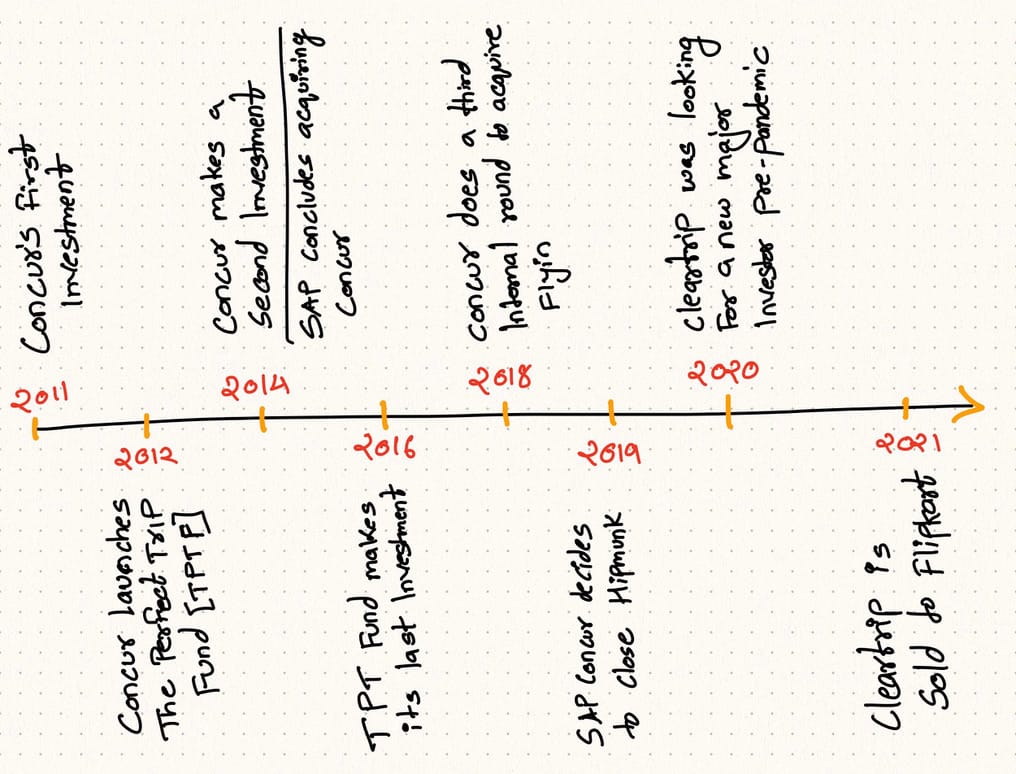 2011
Concur's First
Investment
2012
Concur launches
The Perfect Trip
Fund [TPTF]
2014
Concur makes a
Second Investment
SAP Concludes acquiring
Concur
2016
TPT Fund makes
its last Investment
2018
Concur does a third
Internal round to acquire
Flyin
2019
SAP Concur decides
to close Hipmunk
2020
Cleartrip was looking
For a new major
Investor pre-pandemic
2021
Cleartrip is
Sold to Flipkart